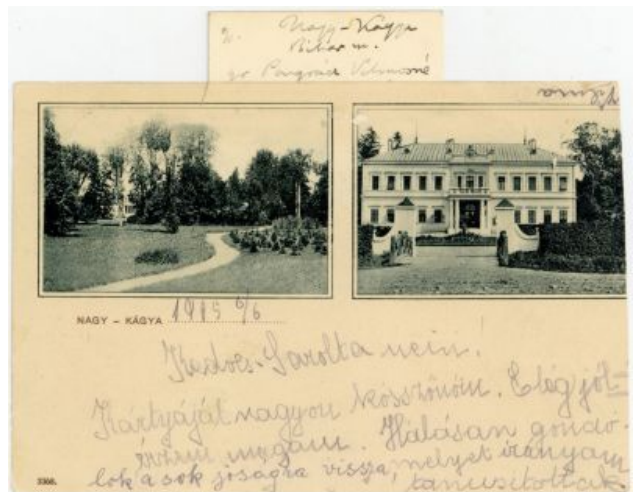 Nagy-Kágya
Bihar m.
gr Pongrácz Vilmosné
Vilma
NAGY – KÁGYA 1915 6/6
Kedves Sarolta néni.
Kártyáját nagyon köszönöm. Elég jól
érzem magam. Hálásan gondo-
lok a sok jóságra vissza, melyet irányam
tanusítottak
3358.